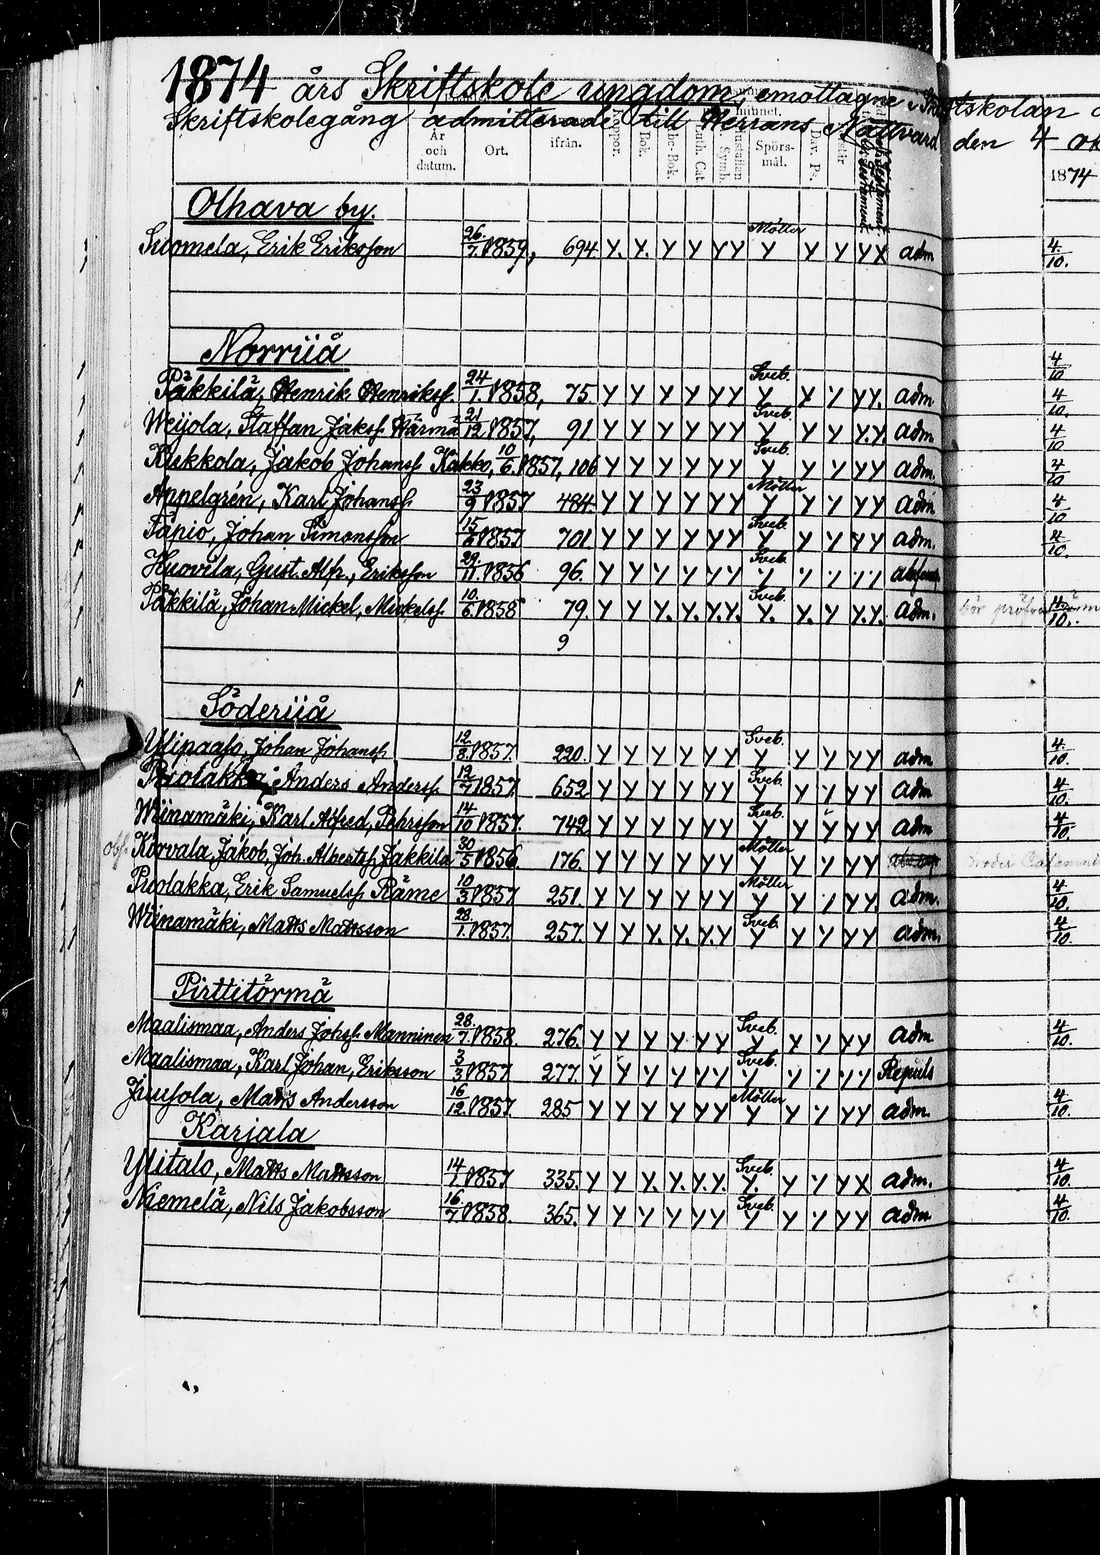 1874 års Skriftskole ungdom, emottagne i Skriftskolan
Skriftskolegång admitterade till Herrans Nattvard den 4
År och datum. Ort. ifrån. Spörs-mål. 1874
Olhava by.
Suomela, Erik Eriksson 26/7 1859, 694 Y. X. Y Y Y Y Möller Y Y Y Y X adm 4/10.
Norriiå
4/10
Päkkilä, Henrik Henrikss. 24/1 1858, 75 Y Y Y Y Y Y Sveb. Y Y Y Y Y. adm 4/10.
Weijola, Staffan Jakss. Wärmä 21/12 1857, 91 Y Y Y Y Y Y Sveb. Y Y Y Y. Y. adm 4/10
Kukkola, Jakob Johanss. Kakko, 10/6 1857, 106 Y Y Y Y Y Y Sveb. Y Y Y Y Y adm. 4/10
Appelgrén, Karl Johanss. 23/9 1857 484 Y Y Y Y Y Y Möller Y Y Y Y Y adm 4/10
Tapio, Johan Simonsson 15/6 1857 701 Y Y Y Y Y Y Sveb. Y Y Y Y Y adm. 4/10.
Huovila, Gust. Alfr., Eriksson 29/11 1856 96. Y Y Y Y Y Y Sveb. Y Y Y Y Y
Päkkilä, Johan Mickel, Mickelss. 10/6 1858 79. Y Y Y. Y. Y. Y. Sveb. Y. Y. Y Y. Y. adm. 4/10.
9
Söderiiå
Ylipaaso, Johan Johanss. 12/8 1857. 220. Y Y Y Y Y Y Sveb. Y Y Y Y Y adm 4/10.
Puolakka, Anders Anderss. 12/7 1857. 652 Y Y Y Y Y Y Sveb. Y Y Y Y Y adm 4/10.
Wiinamäki, Karl Alfred, Pehrsson 14/10 1857. 742 Y Y Y Y Y Y Sveb. Y Y Y Y Y adm 4/10
obs. Korvala, Jakob, Joh. Albertss. Jakkila 30/5 1856. 176. Y Y Y Y Y Y Möller Y Y Y Y Y
Puolakka, Erik Samuelss. Räme 10/3 1857 251. Y Y Y Y Y Y Möller Y Y Y Y Y adm. 4/10.
Wiinamäki, Matts Mattsson 28./1. 1857. 257. Y Y Y. Y. Y. Y Sveb. Y Y Y Y Y adm. 4/10.
Pirttitörmä
Maalismaa, Anders Johss. Manninen 28./7 1858. 276. Y Y Y Y Y Y Sveb. Y Y Y Y Y adm 4/10.
Maalismaa, Karl Johan, Eriksson 3/3 1857 277. Y Y Y Y Y Y Sveb. Y Y Y Y Y Repuls
Juusola, Matts Andersson 16/12 1857. 285 Y Y Y Y Y Y Möller Y Y Y Y Y adm. 4/10.
Karjala
Ylitalo, Matts Mattsson 14/7 1857 335. Y Y Y. Y. Y. Y. Sveb. Y. Y Y Y X adm. 4/10.
Niemelä, Nils Jakobsson 16/7 1858. 365. Y Y Y Y Y Y Sveb. Y Y Y Y Y adm 4/10.